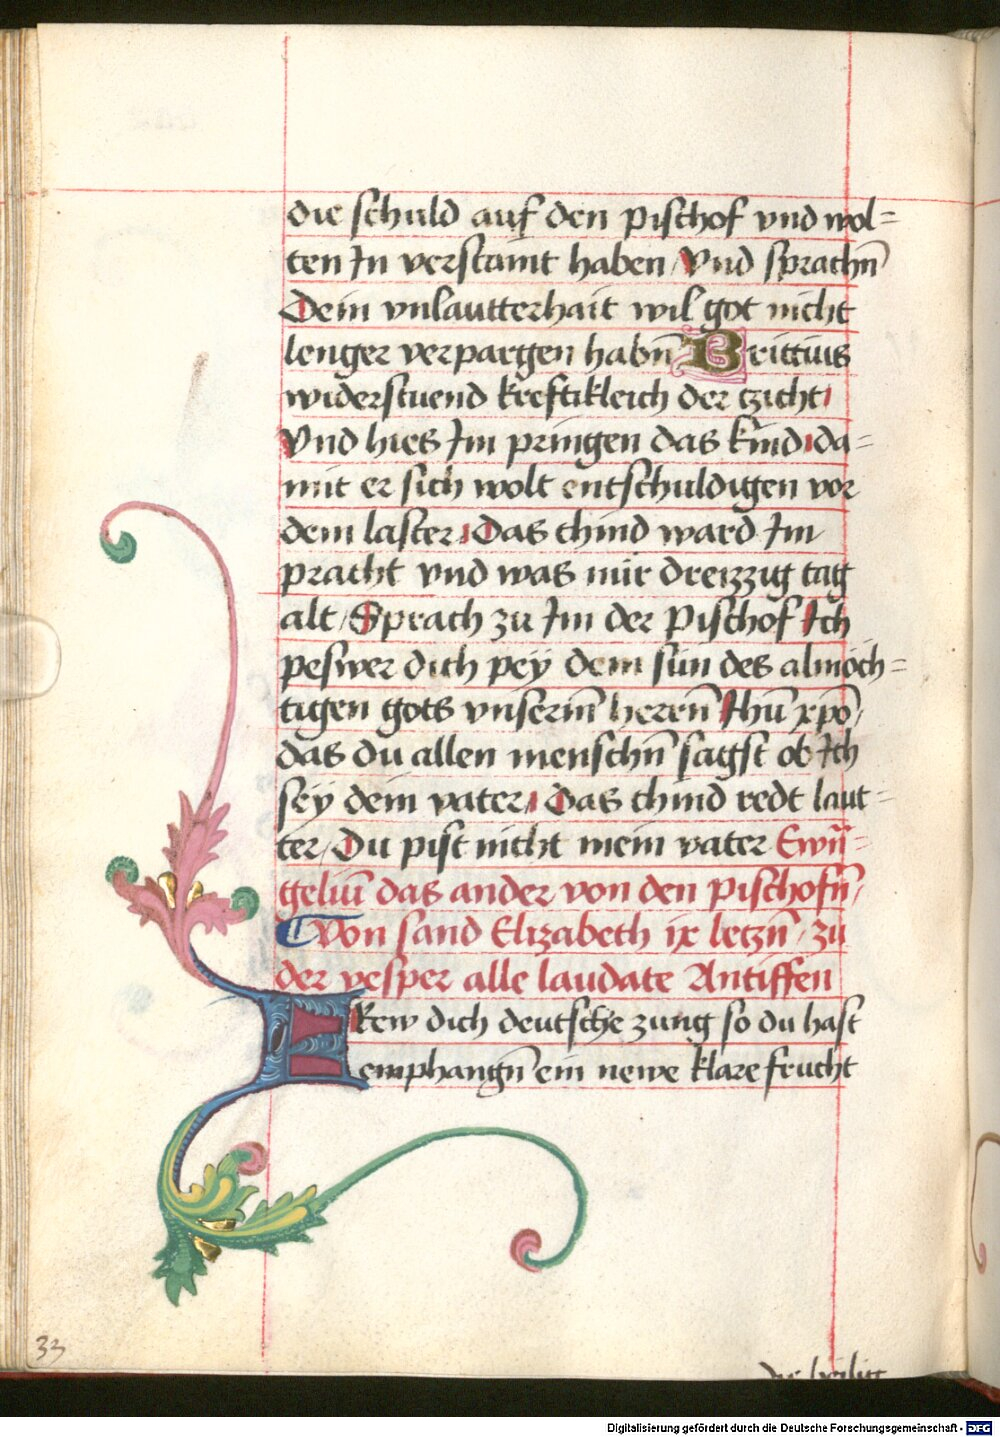 die schuld auf den pischof vnd wol=
ten In verstaint haben / Vnd sprachn̄
Dein vnlautterhait wil got nicht
lenger verpargen habn̄ Brittius
widerstuend kreftikleich der tzicht
Vnd hies Im pringen das kind da=
mit er sich wolt entschuldigen vor
dem laster Das chind ward Im
pracht vnd was nur dreizzig tag
alt / Sprach zu Im der Pischof Ich
peswer dich pey dem sun des almöch=
tigen gots vnserm̄ herren̄ Ihū xpō /
das du allen menschn̄ sagst ob Ich
sey dein vater Das chind redt laut=
ter / Du pist nicht mein vater Ewn̄=
geliū das ander von den pischofn̄ /
Von sand Elizabeth ix letzn̄ / zu
der vesper alle laudate Antiffen
Frew dich deutsche zung so du hast
emphangn̄ ein newe klare frucht
33
die heilig
Digitalisierung gefördert durch die Deutsche Forschungsgemeinschaft - DFG